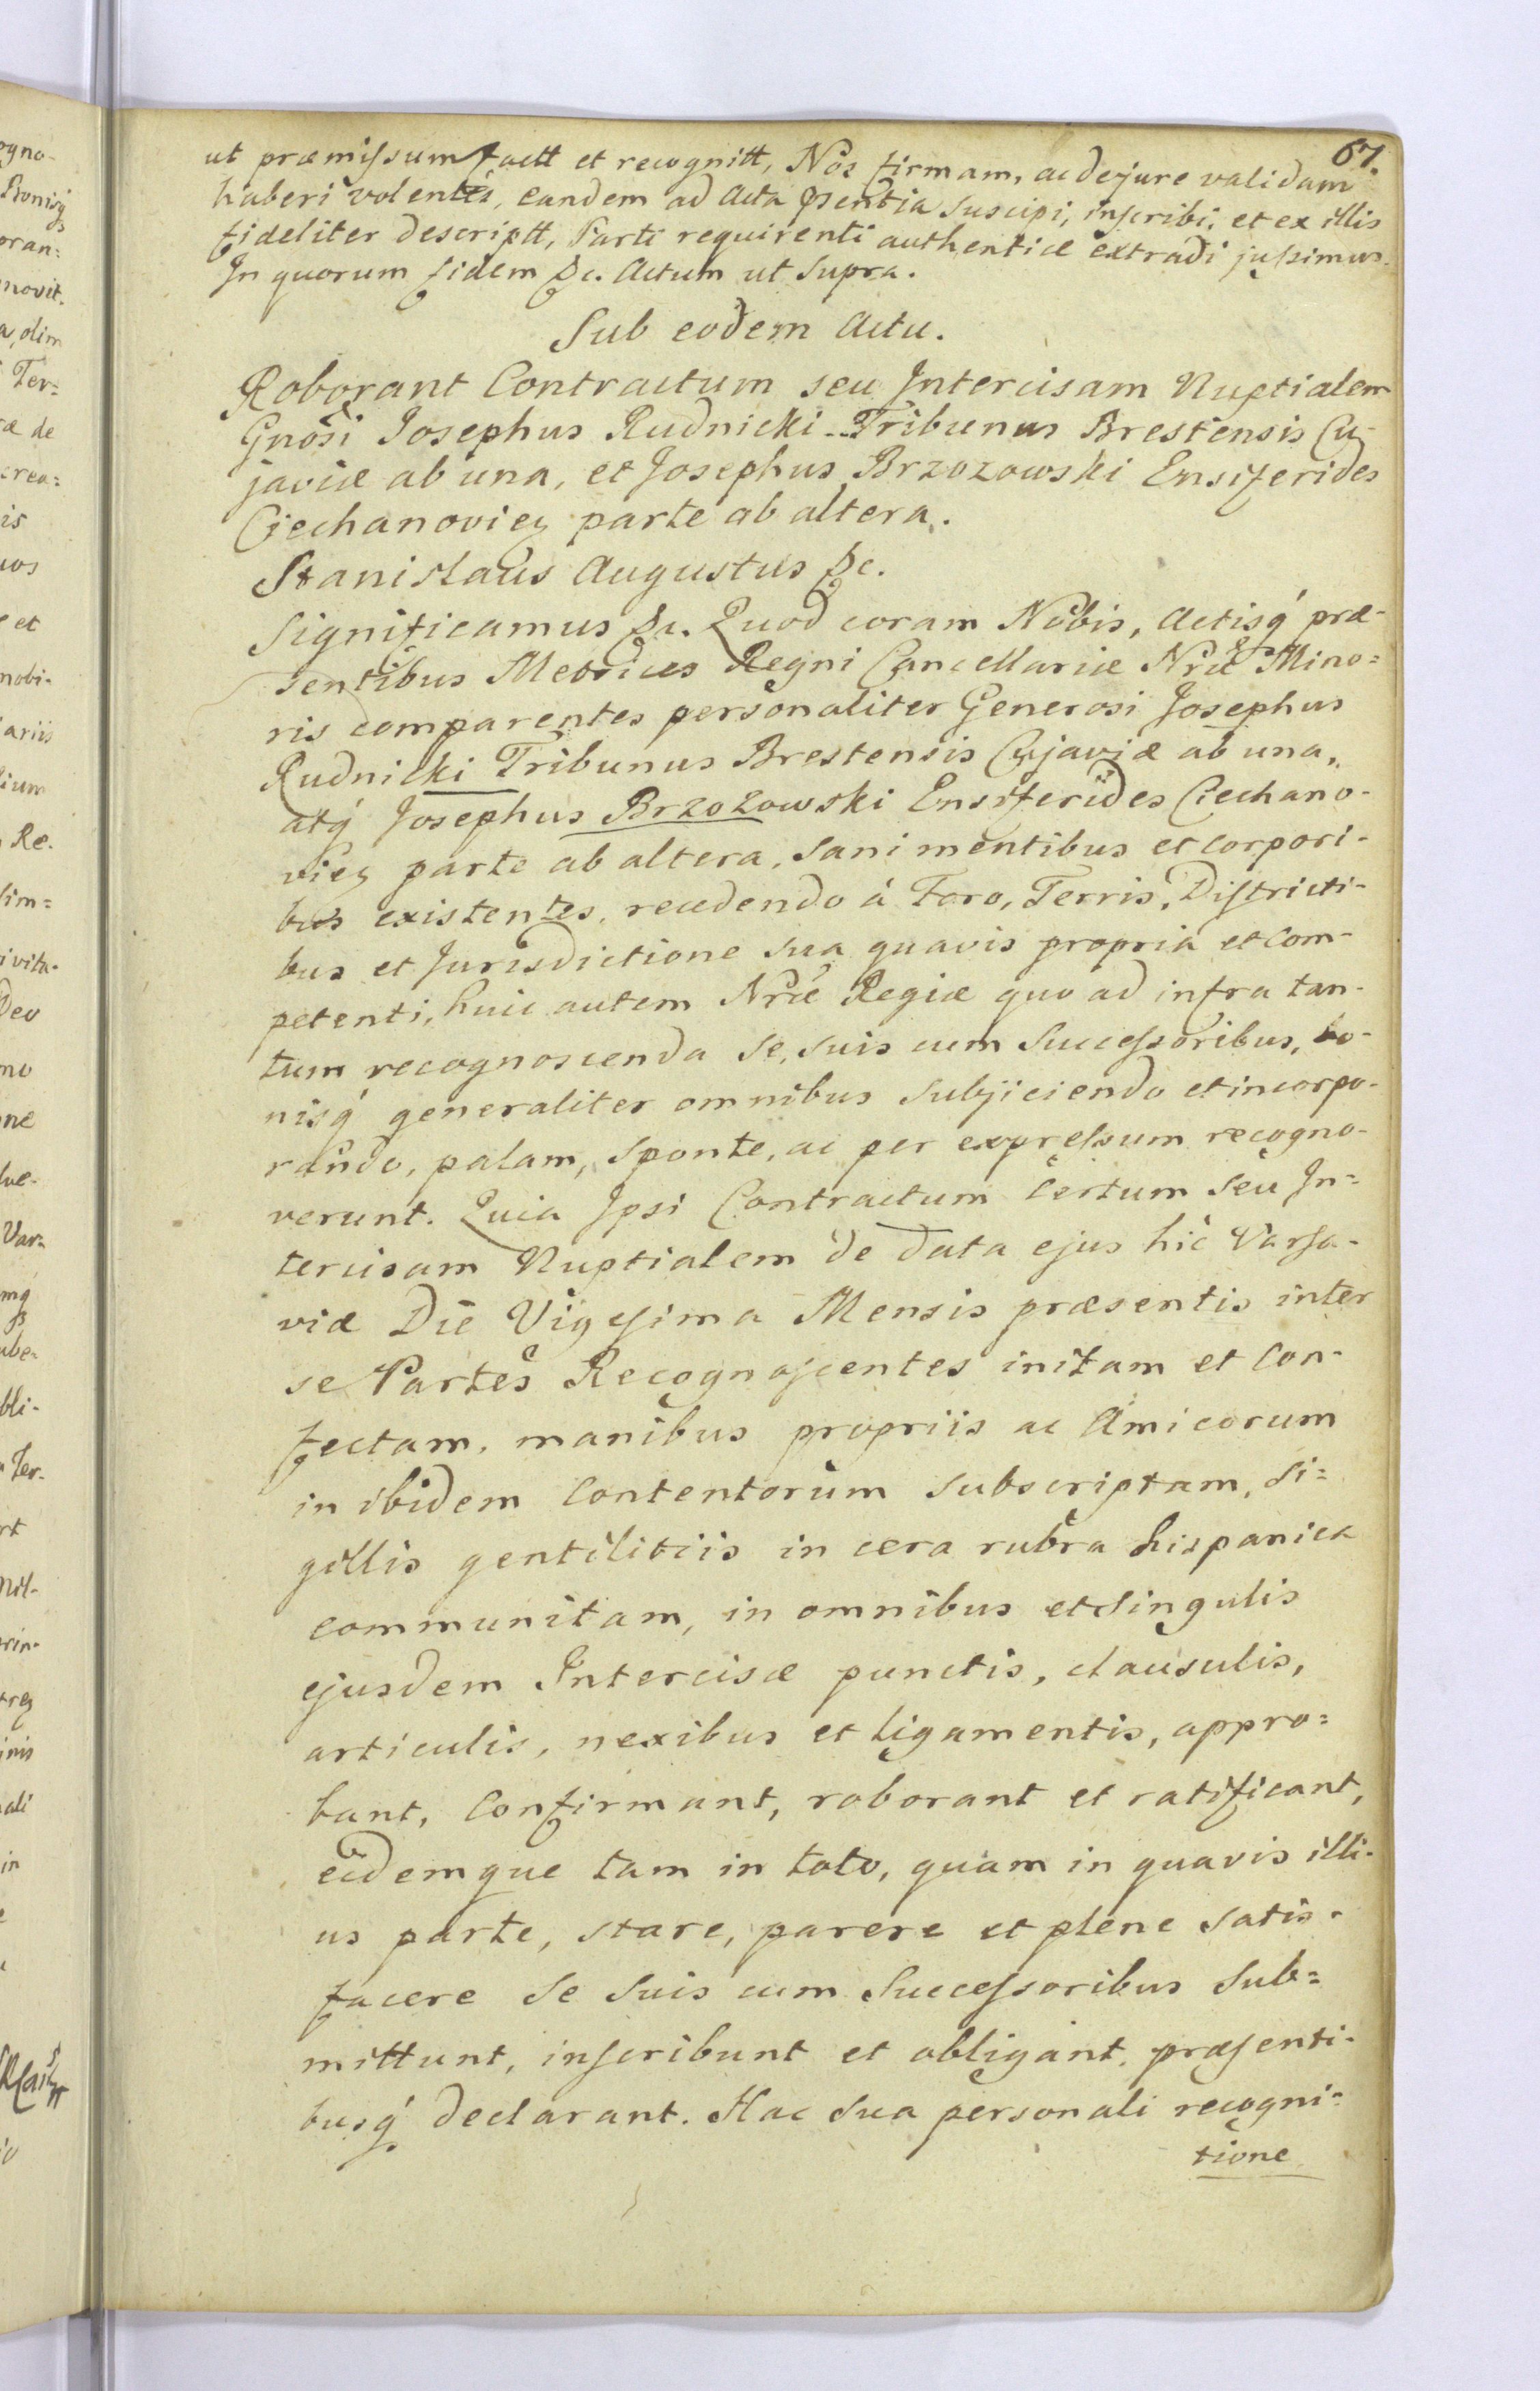 67.
ut præmissum factt et recognitt, Nos firmam, ac de jure validam
haberi volentes, eandem ad Acta psentia suscipi, inscribi, et ex illis
fideliter descriptt, Parti requirenti authenticæ extradi jussimus.
In quorum fidem &c. Actum ut supra.
Sub eodem Actu.
Roborant Contractum seu Intercisam Nuptialem
Gnosi Josephus Rudnicki Tribunus Brestensis Cu-
javiæ ab una, et Josephus Brzozowski Ensiferides
Ciechanovieɳ parte ab altera.
Stanislaus Augustus &c.
Significamus &c. Quod coram Nobis, Actisq́ præ-
sentibus Metrices Regni Cancellariæ Nræ Mino=
ris comparentes personaliter Generosi Josephus
Rudnicki Tribunus Brestensis Cujaviæ ab una,
atq́ Josephus Brzozowski Ensiferides Ciechano-
vieɳ parte ab altera, sani mentibus et corpori-
bus existentes, recedendo à Foro, Terris, Districti-
bus et Jurisdictione sua quavis propria et com-
petenti, huic autem Nræ Regiæ quo ad infra tan-
tum recognoscenda se, suis cum Successoribus, bo-
nisq́ generaliter omnibus subjiciendo et incorpo-
rando, palam, sponte, ac per expressum recogno-
verunt. Quia Ipsi Contractum Certum seu In=
tercisam Nuptialem de data ejus hic Varsa-
viæ Die Vigesima Mensis præsentis inter
se Partes Recognoscentes initam et con-
fectam, manibus propriis ac Amicorum
in ibidem Contentorum subscriptam, si=
gillis gentilitiis in cera rubra hispanica
communitam, in omnibus et singulis
ejusdem Intercisæ punctis, clausulis,
articulis, nexibus et ligamentis, appro=
bant, confirmant, roborant et ratificant,
eidemque tam in toto, quam in quavis illi-
us parte, stare, parere et plene satis-
facere se suis cum Successoribus sub=
mittunt, inscribunt et obligant, præsenti-
busq́ declarant. Hac sua personali recogni=
tione